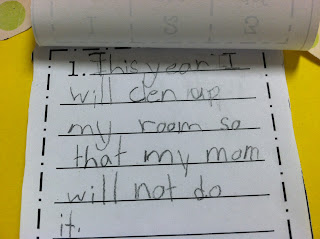 1. This year I
will clen up
my room so
that my mom
will not do
it.